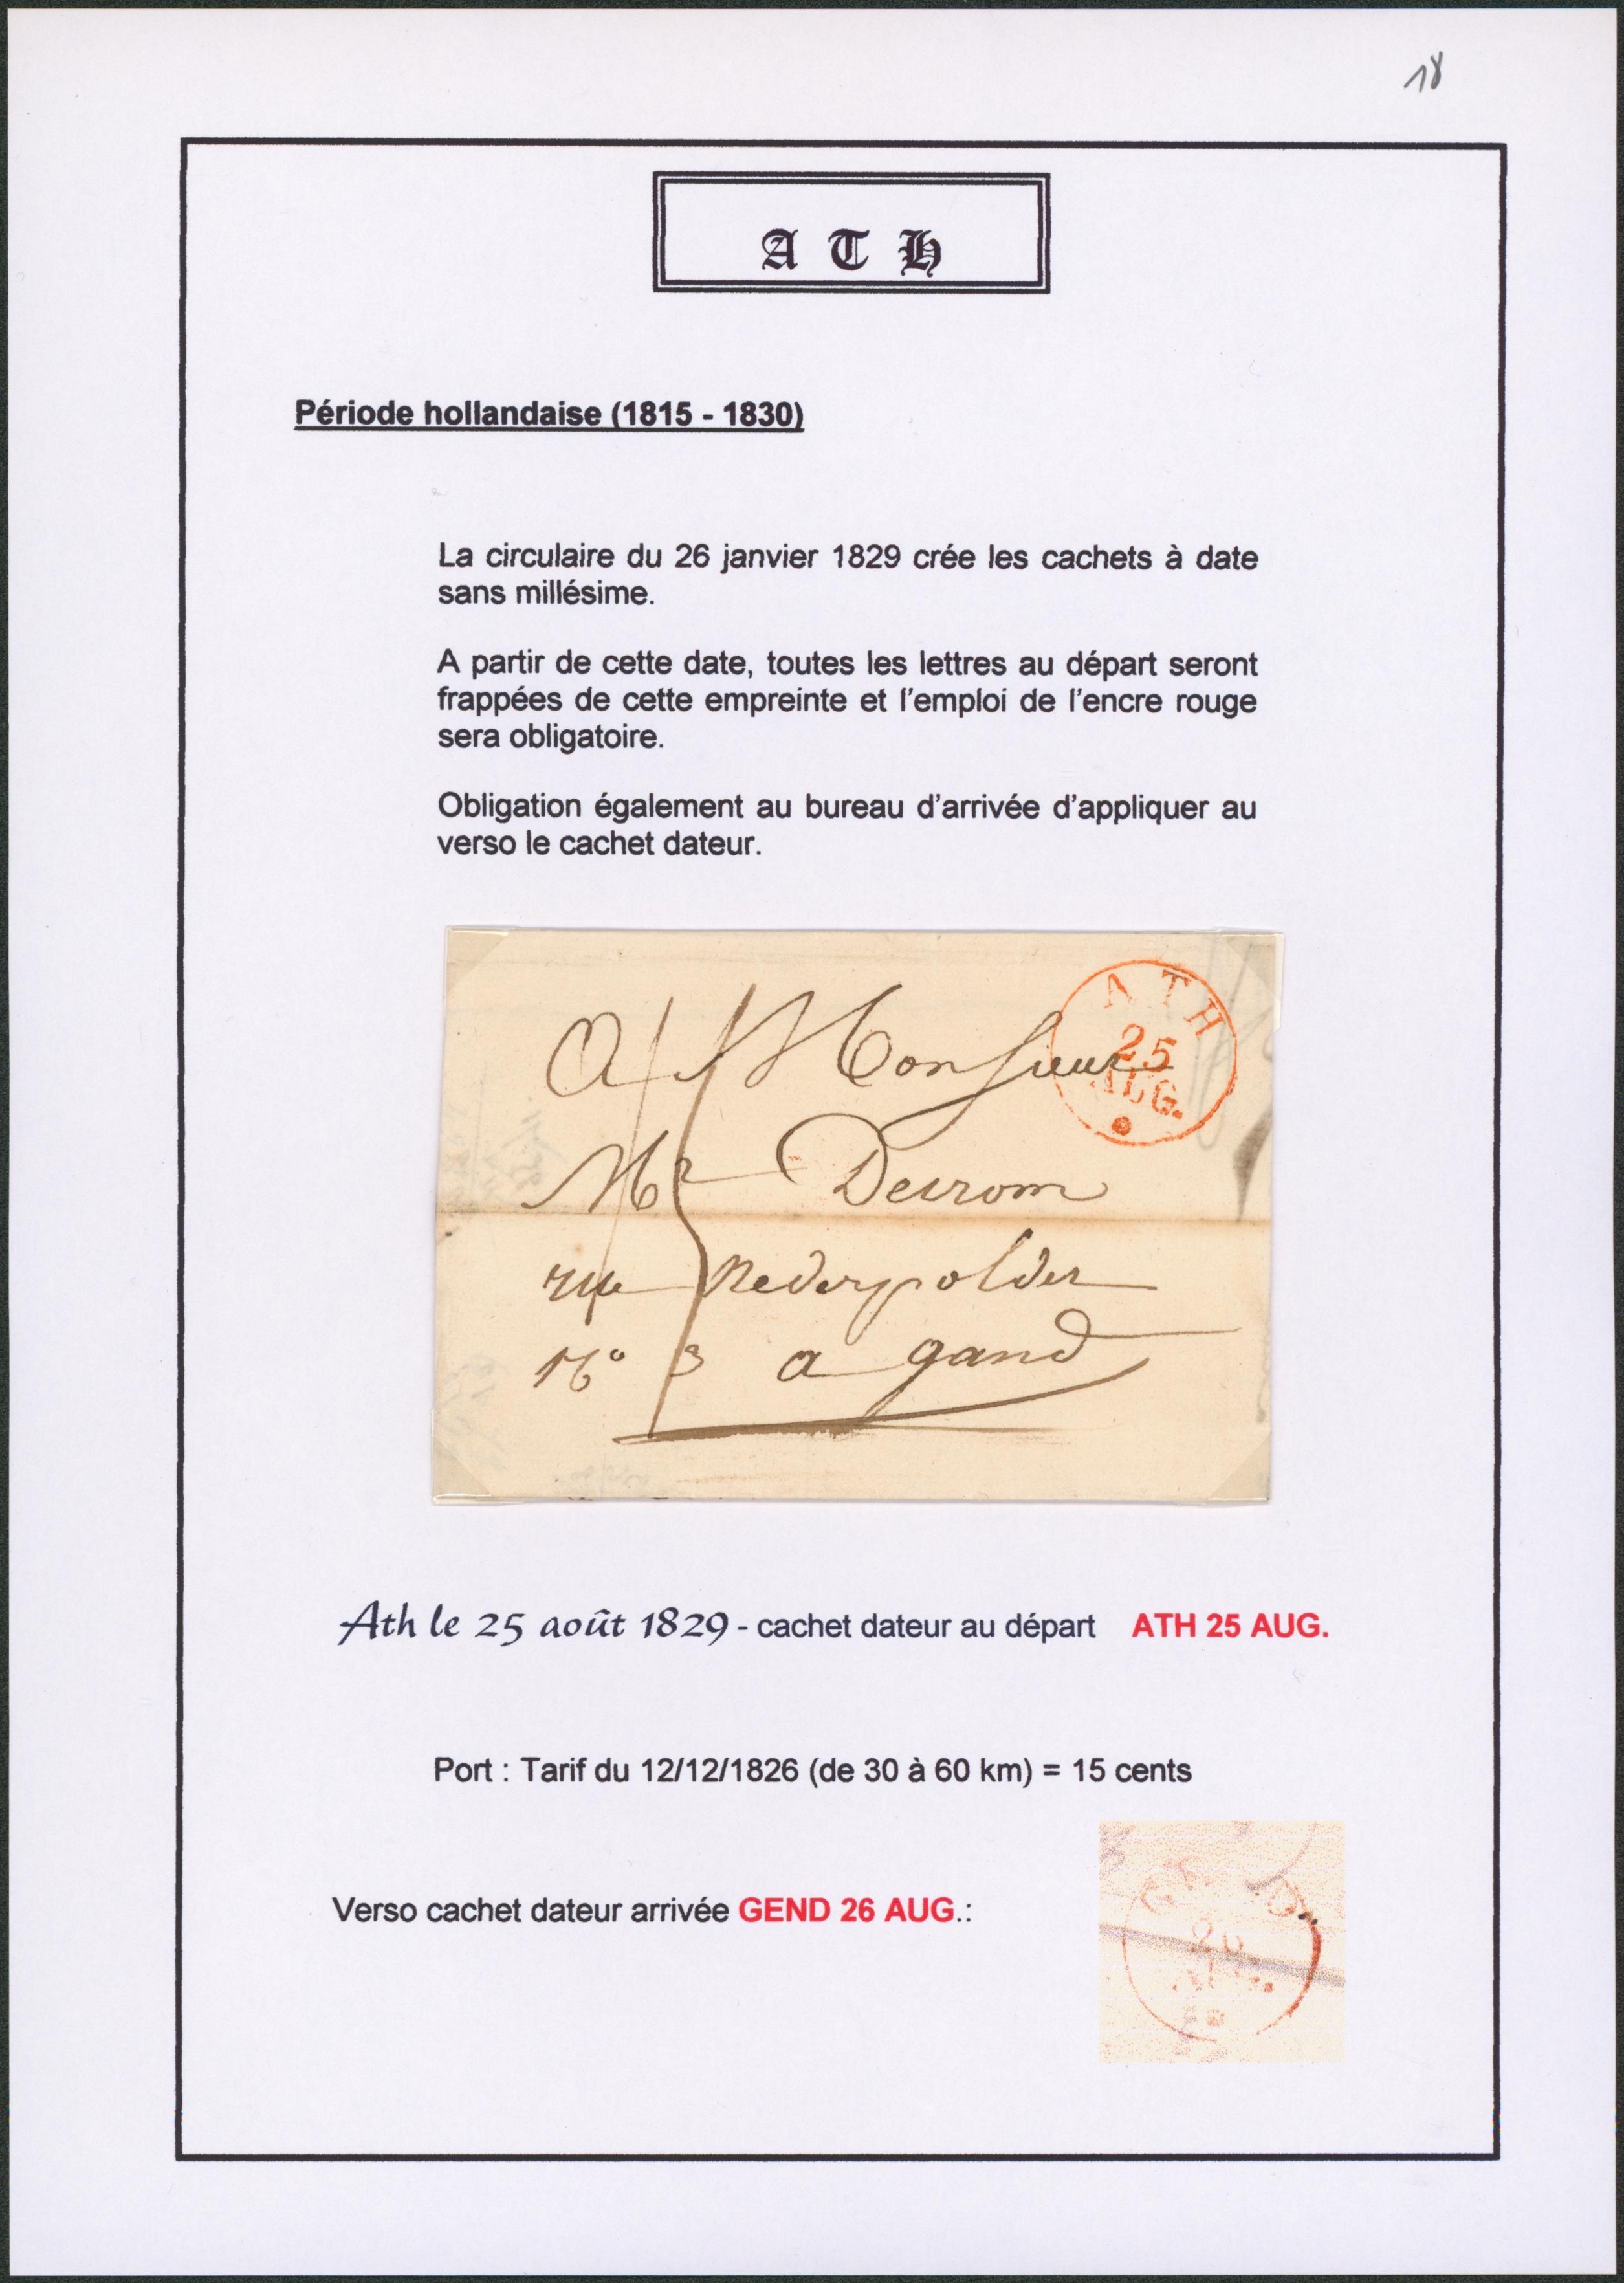 18
A T H
Période hollandaise (1815 - 1830)
La circulaire du 26 janvier 1829 crée les cachets à date
sans millésime.
A partir de cette date, toutes les lettres au départ seront
frappées de cette empreinte et l'emploi de l'encre rouge
sera obligatoire.
Obligation également au bureau d'arrivée d'appliquer au
verso le cachet dateur.
ATH
25
AUG.
A Monsieur
Mr Derrom
rue Nederpolder
No 3 a gand
Ath le 25 août 1829 - cachet dateur au départ ATH 25 AUG.
Port : Tarif du 12/12/1826 (de 30 à 60 km) = 15 cents
Verso cachet dateur arrivée GEND 26 AUG.:
26